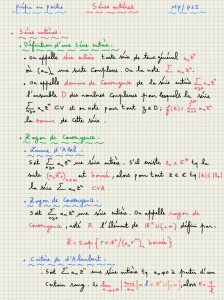 prépa en poche Séries entières MP/PSI
. Séries entières :
. Définition d'une série entière :
. On appelle série entière toute série de terme général aₙ zⁿ
où (aₙ)ₙ une suite complexe. On la note Σ aₙ zⁿ.
. On appelle domaine de convergence de la série entière Σ aₙ zⁿ
l'ensemble D des nombres complexes pour lesquels la série
Σ aₙ zⁿ CV et on note pour tout z ∈ D ; f(z) = Σ aₙ zⁿ
la somme de cette série.
. Rayon de convergence :
. Lemme d'Abel :
Soit Σ aₙ zⁿ une série entière. S'il existe z₀ ∈ ℂ* tq la
suite (aₙ z₀ⁿ)ₙ est bornée, alors pour tout z ∈ ℂ tq |z| < |z₀|
la série Σ aₙ zⁿ CVA.
. Rayon de convergence :
Soit Σ aₙ zⁿ une série entière. On appelle rayon de
convergence, noté R l'élément de ℝ⁺ ∪ {+∞} défini par :
R = Sup { r ∈ ℝ⁺ / (aₙ rⁿ)ₙ bornée }
. Critère de d'Alembert :
. Soit Σ aₙ zⁿ une série entière tq aₙ ≠ 0 à partir d'un
certain rang. Si lim = l ∈ ℝ⁺ ∪ {+∞}, alors R = 1/l